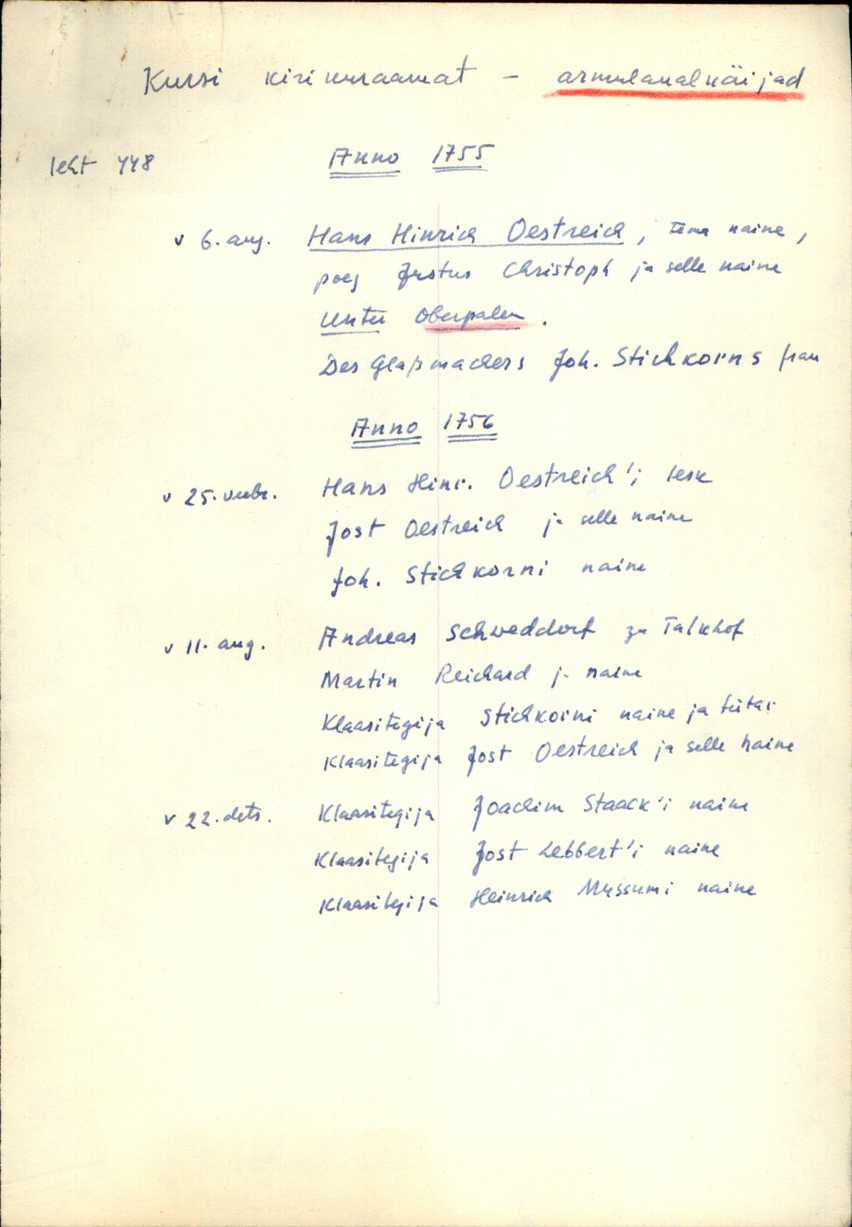 Kursi kirikuraamat – armulaualkäijad
leht 448 Anno 1755
v 6. aug. Hans Hinrich Oestreich, tema naine,
poeg Justus Christoph ja selle naine
Unter Oberpalen.
Des Glaßmachers Joh. Stichkorns frau
Anno 1756
v 25. veebr. Hans Hinr. Oestreich'i lesk
Jost Oestreich ja selle naine
Joh. Stichkorni naine
v 11. aug. Andreas Schweddorf zu Talkhof
Martin Reichard j. naine
Klaasitegija Stichkorni naine ja tütar
Klaasitegija Jost Oestreich ja selle naine
v 22. dets. Klaasitegija Joachim Staack'i naine
Klaasitegija Jost Lebbert'i naine
Klaasitegija Heinrich Mussumi naine